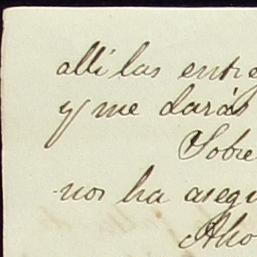 alli las entre
y me darás
Sobre
nos ha asegu
Aho